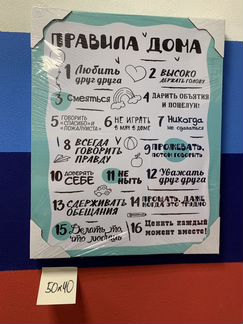 ПРАВИЛА ДОМА
1 Любить
друг друга
2 ВЫСОКО
ДЕРЖАТЬ ГОЛОВУ
3 Смеяться
4 ДАРИТЬ ОБЪЯТИЯ
И ПОЦЕЛУИ!
5 ГОВОРИТЬ
«СПАСИБО» И
«ПОЖАЛУЙСТА»
6 НЕ ИГРАТЬ
В МЯЧ В ДОМЕ
7 Никогда
не сдаваться
8 ВСЕГДА
ГОВОРИТЬ
ПРАВДУ
9 ПРОЖЕВАТЬ,
ПОТОМ ГОВОРИТЬ
10 ДОВЕРЯТЬ
СЕБЕ
11 НЕ
НЫТЬ
12 Уважать
друг друга
13 СДЕРЖИВАТЬ
ОБЕЩАНИЯ
14 ПРОЩАТЬ, ДАЖЕ
КОГДА ЭТО ТРУДНО
15 Делать то,
что любишь
16 Ценить каждый
момент вместе!
50х40